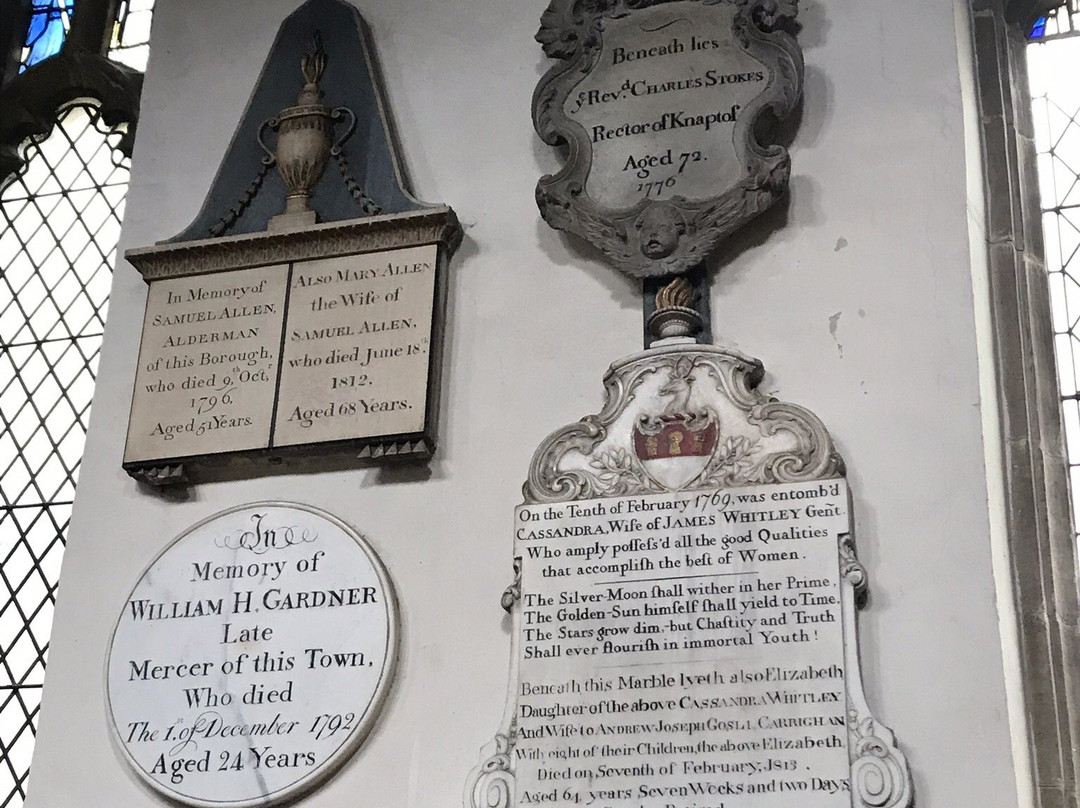 Beneath lies
yͤ Revᵈ. CHARLES STOKES
Rector of Knaptof
Aged 72.
1776
In Memory of
SAMUEL ALLEN,
ALDERMAN
of this Borough,
who died 9,ᵗʰ Octʳ,
1796.
Aged 51 Years.
ALSO MARY ALLEN
the Wife of
SAMUEL ALLEN,
who died June 18ᵗʰ.
1812.
Aged 68 Years.
In
Memory of
WILLIAM H. GARDNER
Late
Mercer of this Town,
Who died
The 1.ˢᵗ of December 1792
Aged 24 Years
On the Tenth of February 1769, was entomb'd
CASSANDRA, Wife of JAMES WHITLEY Gen̄t.
Who amply poſſeſs'd all the good Qualities
that accompliſh the beſt of Women.
The Silver-Moon ſhall wither in her Prime,
The Golden-Sun himſelf ſhall yield to Time.
The Stars grow dim,-but Chaſtity and Truth
Shall ever flouriſh in immortal Youth!
Beneath this Marble lyeth also Elizabeth
Daughter of the above CASSANDRA WHITLEY
And Wife to ANDREW JOSEPH CARRIGHAN
With eight of their Children, the above Elizabeth
Died on Seventh of February, 1813.
Aged 64, years Seven Weeks and two Days